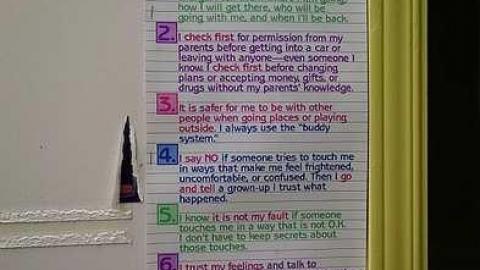 how I will get there, who will be
going with me, and when I'll be back.
2. I check first for permission from my
parents before getting into a car or
leaving with anyone—even someone I
know. I check first before changing
plans or accepting money, gifts, or
drugs without my parents' knowledge.
3. It is safer for me to be with other
people when going places or playing
outside. I always use the "buddy
system."
4. I say NO if someone tries to touch me
in ways that make me feel frightened,
uncomfortable, or confused. Then I go
and tell a grown-up I trust what
happened.
5. I know it is not my fault if someone
touches me in a way that is not O.K.
I don't have to keep secrets about
those touches.
6. I trust my feelings and talk to